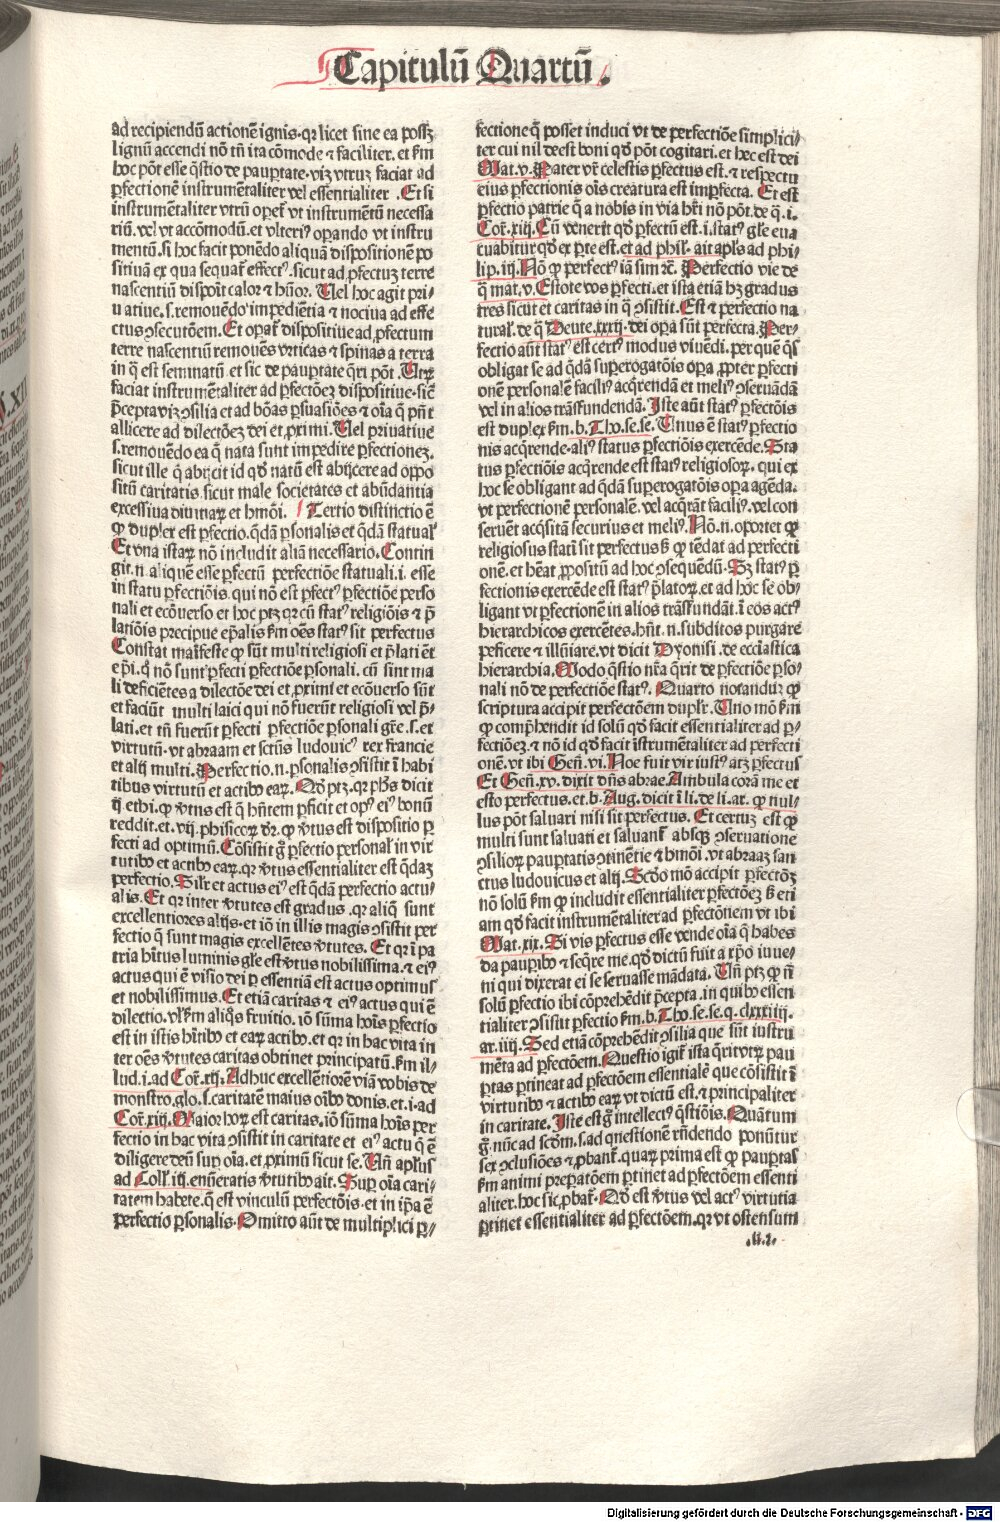 Capitulū Quartū.
ad recipiendū actionē ignis. qꝛ licet sine ea possꝫ
lignū accendi nō tñ ita cōmode ⁊ faciliter. et ẜm
hoc pōt esse q̄stio de paupꝑtate. viꝫ vtruꝫ faciat ad
ꝑfectionē instrumētaliter vel essentialiter. Et si
instrumētaliter vtrū oꝑet᷑ vt instrumētū necessa
riū. vel vt accōmodū. et vlteriꝰ oꝑando vt instru
mentū. si hoc facit ponēdo aliquā dispositionē po
sitiuā ex qua sequat᷑ effectꝰ. sicut ad ꝓfectuꝫ terre
nascentiū disponit calor ⁊ hūor. Uel hoc agit pri/
uatiue. s. remouēdo impediētia ⁊ nociua ad effe
ctus ↄsecutōem. Et oꝑat᷑ dispositiue ad ꝓfectum
terre nascentiū remouēs vrticas ⁊ spinas a terra
in q̄ est seminatū. et sic de pauꝑtate q̄ri pōt. Utꝝ
faciat instrumētaliter ad ꝑfectōeꝫ dispositiue. sic̄
p̄cepta viꝫ ↄsilia et ad bōas ꝑsuasiōes ⁊ oīa q̄ pn̄t
allicere ad dilectōeꝫ dei et ꝓximi. Uel priuatiue
s. remouēdo ea q̄ nata sunt impedire ꝑfectioneꝫ.
sicut ille q̄ abijcit id qd̄ natū est abijcere ad oppo
sitū caritatis. sicut male societates et abūdantia
excessiua diuitiaꝝ et hmōi. Tertio distinctio ē
ꝙ duplex est ꝑfectio. q̄dā ꝑsonalis et q̄dā statual᷑
Et vna istaꝝ nō includit aliā necessario. Contin
git. n. aliquē esse ꝑfectū perfectiōe statuali. i. esse
in statu ꝑfectiōis. qui nō est ꝑfectꝰ ꝑfectiōe ꝑso
nali et ecōuerso et hoc ptꝫ qꝛ cū statꝰ religiōis ⁊ p̄
latiōis precipue ep̄alis ẜm oēs statꝰ sit perfectus
Constat maīfeste ꝙ sūt multi religiosi et p̄lati ēt
ep̄i. q̄ nō sunt ꝑfecti ꝑfectiōe ꝑsonali. cū sint ma
li deficiētes a dilectōe dei et ꝓximi et ecōuerso sūt
et faciūt multi laici qui nō fuerūt religiosi vel p̄/
lati. et tñ fuerūt ꝑfecti ꝑfectiōe ꝑsonali gr̄e. s. et
virtutū. vt abraam et sctūs ludouicꝰ rex francie
et alij multi. Perfectio. n. ꝑsonalis ↄsistit ī habi
tibus virtutū et actibꝰ eaꝝ. Qd̄ ptꝫ. qꝛ ph̄s dicit
ij. ethi. ꝙ v̄tus est q̄ hn̄tem ꝑficit et opꝰ eiꝰ bonū
reddit. et. vij. phisicoꝝ dr̄. ꝙ v̄tus est dispositio ꝑ
fecti ad optimū. Cōsistit ḡ ꝑfectio ꝑsonal᷑ in vir
tutibꝰ et actibꝰ eaꝝ. qꝛ v̄tus essentialiter est q̄daꝫ
perfectio. Sil᷑r et actus eiꝰ est q̄dā perfectio actu/
alis. Et qꝛ inter v̄tutes est gradus. qꝛ aliq̄ sunt
excellentiores alijs. et iō in illis magis ↄsistit per
fectio q̄ sunt magis excellētes v̄tutes. Et qꝛ ī pa
tria hītus luminis gl̄e est v̄tus nobilissima. ⁊ eiꝰ
actus qui ē visio dei ꝑ essentiā est actus optimus
et nobilissimus. Et etiā caritas ⁊ eiꝰ actus qui ē
dilectio. vl̓ ẜm aliq̄s fruitio. iō sūma hoīs ꝑfectio
est in istis hītibꝰ et eaꝝ actibꝰ. et qꝛ in hac vita in
ter oēs v̄tutes caritas obtinet principatū. ẜm il/
lud. i. ad Cor̄. xij. Adhuc excellētiorē viā vobis de
monstro. glo. s. caritatē maius oībꝰ donis. et. i. ad
Cor̄. xiij. Maior hoꝝ est caritas. iō sūma hoīs per
fectio in hac vita ↄsistit in caritate et eiꝰ actu q̄ ē
diligere deū suꝑ oīa. et ꝓximū sicut se. Uñ apl̄us
ad Coll̄. iij. enūeratis v̄tutibꝰ ait. Suꝑ oīa cari/
tatem habete. q̄ est vinculū perfectōis. et in ip̄a ē
perfectio ꝑsonalis. Omitto aūt de multiplici ꝑ/
fectione q̄ posset induci vt de perfectiōe simplici/
ter cui nil deest boni qd̄ pōt cogitari. et hec est dei
Mat. v. Pater vr̄ celestis ꝑfectus est. ⁊ respectu
eius ꝑfectionis oīs creatura est imꝑfecta. Et est
ꝑfectio patrie q̄ a nobis in via hr̄i nō pōt. de q̄. i.
Cor̄. xiij. Cū venerit qd̄ ꝑfectū est. i. statꝰ gl̄e eua
cuabitur qd̄ ex ꝑte est. et ad phil̓. ait apl̄s ad phi/
lip. iij. Nō ꝙ perfectꝰ iā sim ⁊c̄. Perfectio vie de
q̄ mat. v. Estote vos ꝑfecti. et ista etiā hꝫ gradus
tres sicut et caritas in q̄ ↄsistit. Est ⁊ perfectio na
tural̓. de q̄ Deute. xxxij. dei oꝑa sūt perfecta. Per/
fectio aūt statꝰ est certꝰ modus viuēdi. per quē q̄s
obligat se ad q̄dā suꝑerogatōis oꝑa. ꝓpter ꝑfecti
onē personalē faciliꝰ acq̄rendā et meliꝰ ↄseruādā
vel in alios trāsfundendā. Iste aūt statꝰ ꝑfectōis
est duplex ẜm. b. Tho. se. se. Unus ē statꝰ ꝑfectio
nis acq̄rende. aliꝰ status ꝑfectiōis exercēde. Sta
tus ꝑfectiōis acq̄rende est statꝰ religiosoꝝ. qui ex
hoc se obligant ad q̄dā suꝑerogatōis oꝑa agēda.
vt perfectionē personalē. vel acq̄rāt faciliꝰ. vel con
seruēt acq̄sitā securius et meliꝰ. Nō. n. oportet ꝙ
religiosus statī sit perfectus ẞ ꝙ tēdat ad perfecti
onē. et hēat ꝓpositū ad hoc ↄsequēdū. Sꝫ statꝰ ꝑ
fectionis exercēde est statꝰ p̄latoꝝ. et ad hoc se ob/
ligant vt ꝑfectionē in alios trāsfundāt. ī eos actꝰ
hierarchicos exercētes. hn̄t. n. subditos purgare
ꝑficere ⁊ illūiare. vt dicit Dyonisi. de eccl̄iastica
hierarchia. Modo q̄stio nr̄a q̄rit de ꝑfectiōe ꝑso/
nali nō de perfectiōe statꝰ. Quarto notandū ꝙ
scriptura accipit perfectōem dupl̓r. Uno mō ẜm
ꝙ comp̄hendit id solū qd̄ facit essentialiter ad ꝑ/
fectiōeꝫ. ⁊ nō id qd̄ facit īstrumētaliter ad perfecti
onē. vt ibi Gen̄. vi. Noe fuit vir iustꝰ atqꝫ ꝑfectus
Et Gen̄. xv. dixit dn̄s abrae. Ambula corā me et
esto perfectus. et. b. Aug. dicit ī li. de li. ar. ꝙ nul/
lus pōt saluari nisi sit perfectꝰ. Et certuꝫ est ꝙ
multi sunt saluati et saluant᷑ absqꝫ ↄseruatione
ↄsilioꝝ pauꝑtatis ↄtinētie ⁊ hmōi. vt abraaꝫ san
ctus ludouicus et alij. Scd̄o mō accipit ꝑfectōꝫ
nō solū ẜm ꝙ includit essentialiter ꝑfectōeꝫ ẞ eti
am qd̄ facit instrumētaliter ad ꝑfectōnem vt ibi
Mat. xix. Si vis ꝑfectus esse vende oīa q̄ habes
⁊ da pauꝑibꝰ ⁊ seq̄re me. qd̄ dictū fuit a xp̄o iuue/
ni qui dixerat ei se seruasse mādata. Uñ ptꝫ ꝙ nō
solū ꝑfectio ibi cōprehēdit p̄cepta. in quibꝰ essen
tialiter ↄsistit ꝑfectio ẜm. b. Tho. se. se. q. clxxxiiij.
ar. iiij. Sed etiā cōprehēdit ↄsilia que sūt instru
mēta ad ꝑfectōem. Questio igit᷑ ista q̄rit vtꝝ pau
ꝑtas ꝑtineat ad ꝑfectōem essentialē que cōsistit ī
virtutibꝰ ⁊ actibꝰ eaꝝ vt dictū est. ⁊ principaliter
in caritate. Iste est ḡ intellectꝰ q̄stiōis. Quātum
ḡ. nūc ad scd̄m. s. ad questionē rn̄dendo ponūtur
sex ↄclusiōes ⁊ ꝓbant᷑. quaꝝ prima est ꝙ pauꝑtas
ẜm animi preparatōem ꝑtinet ad ꝑfectōem essenti
aliter. hoc sic ꝓbat᷑. Qd̄ est v̄tus vel actꝰ virtutis
ꝑtinet essentialiter ad ꝑfectōem. qꝛ vt ostensum
Digitalisierung gefördert durch die Deutsche Forschungsgemeinschaft - DFG